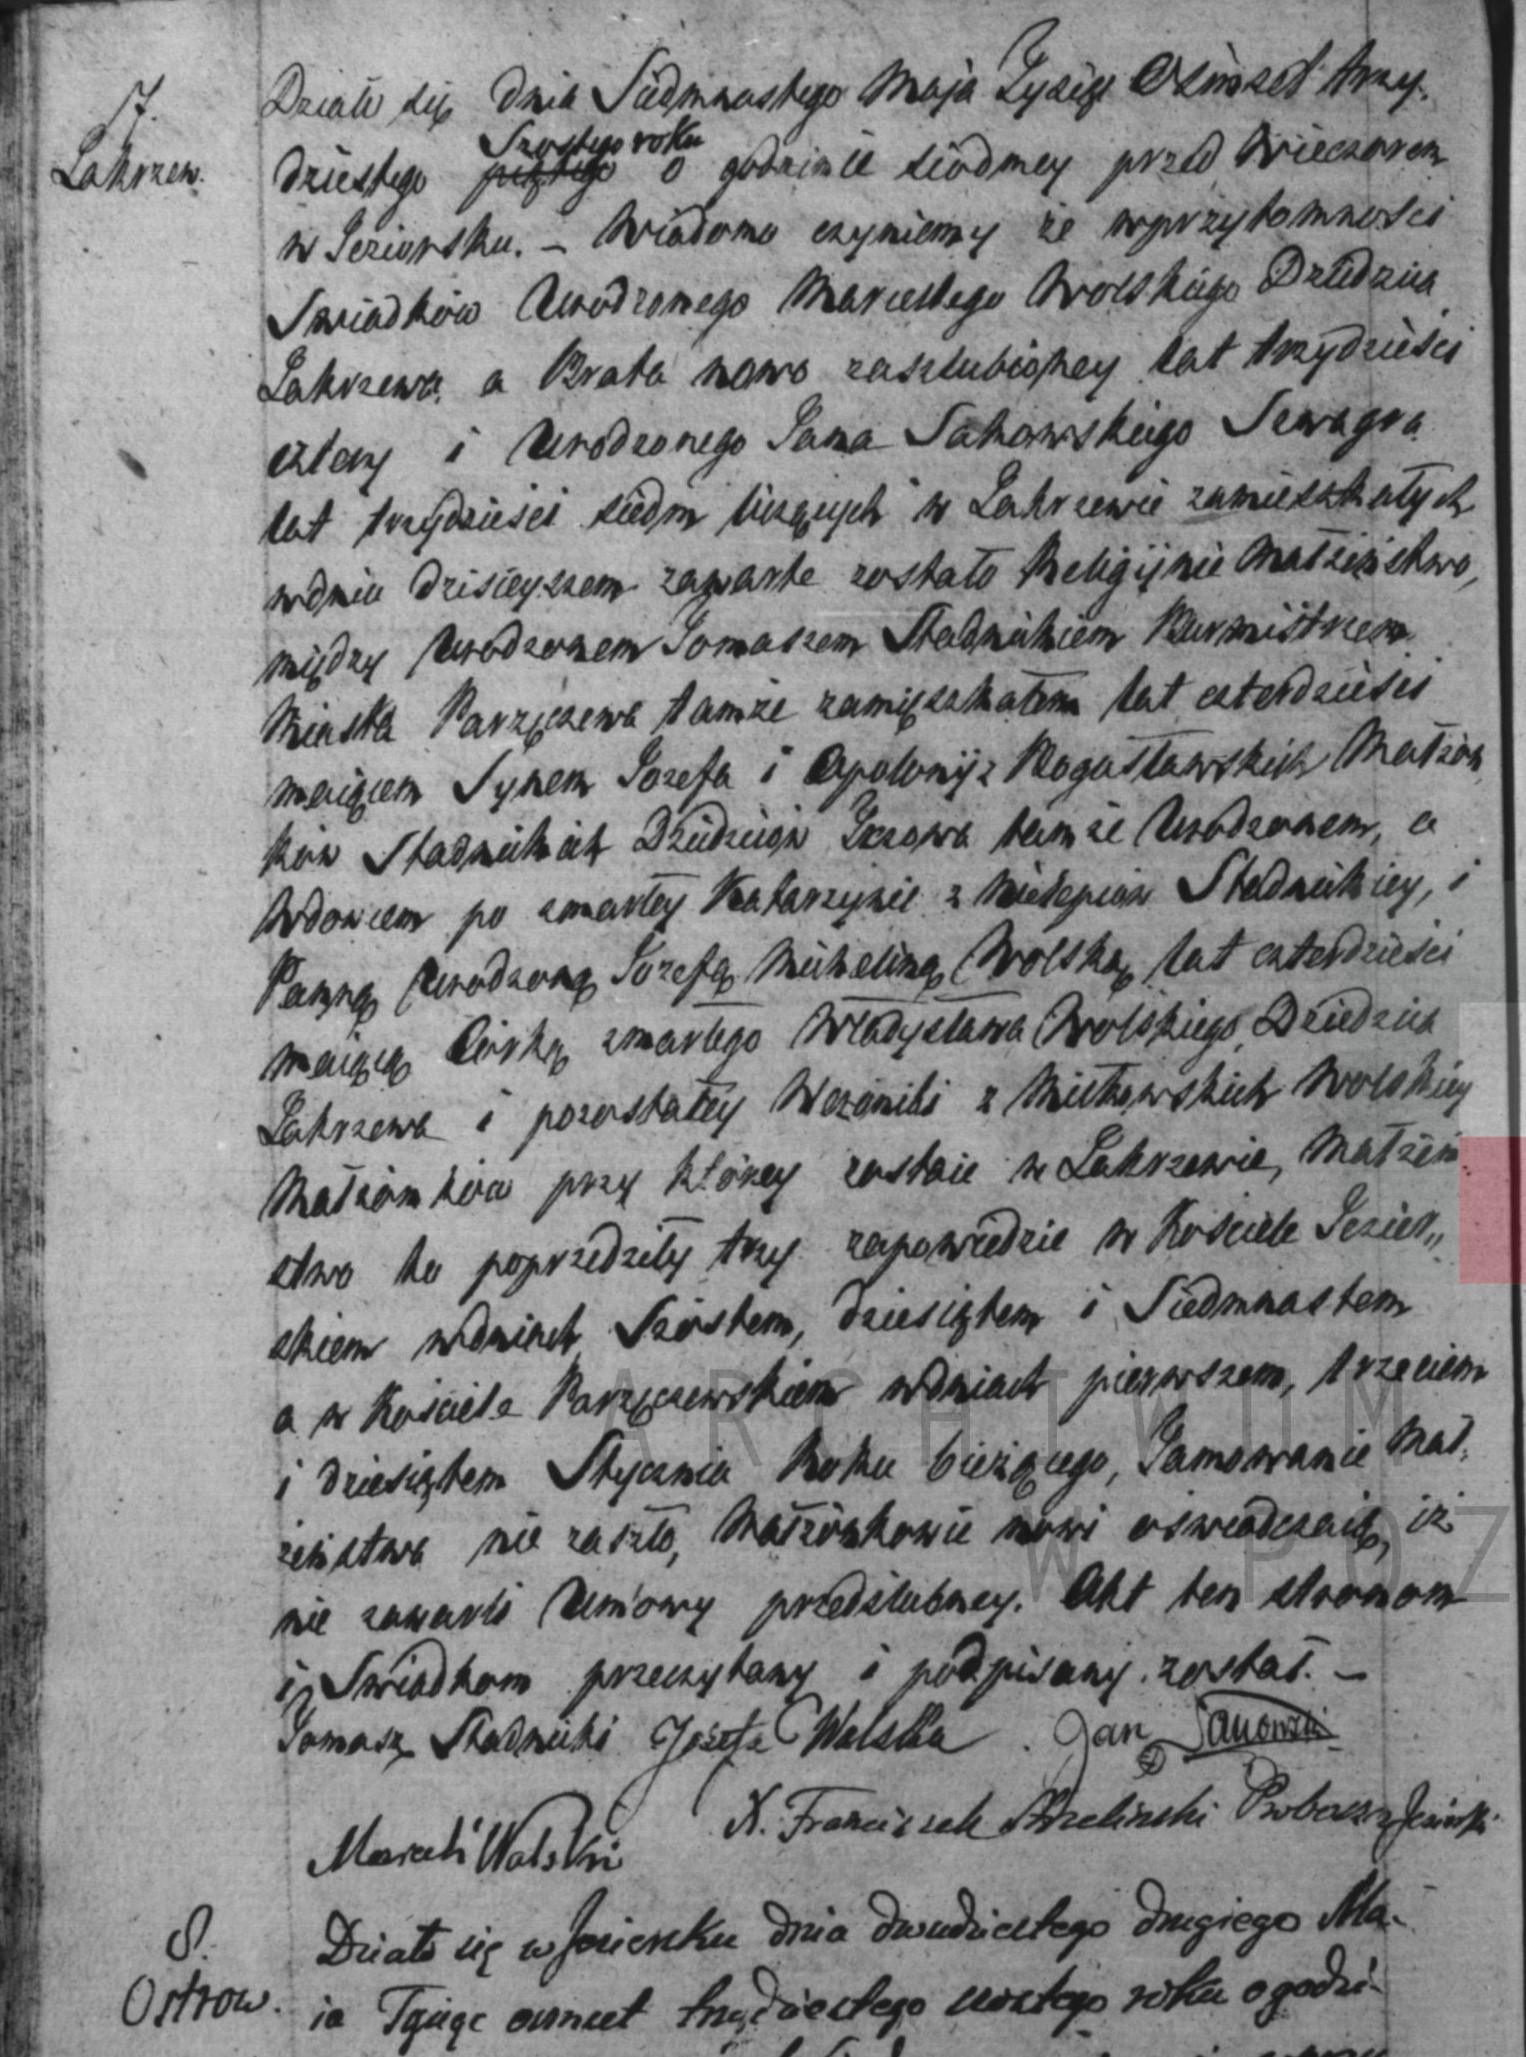 7.
Zakrzew.
Działo się dnia Siedmnastego Maja Tysiąc Osmset trzy,
dziestego piątego Szostego roku o godzinie siódmey przed Wieczorem
w Jeziorsku. – Wiadomo czyniemy że w przytomności
Swiadków Urodzonego Marcellego Wolskiego Dziedzica
Zakrzewa, a Brata nowo zaszlubioney lat trzydzieści
cztery i Urodzonego Jana Szwagra
lat trzydzieści siedm liczących w Zakrzewie zamieszkałych
w dniu dzisieyszem zawarte zostało Religijnie Małżeństwo,
między Urodzonem Tomaszem Stadnickiem Burmistrzem
Miasta Parzęczewa tamże zamięszkałem lat czterdzieści
maiącem Synem Jozefa i Apolonij z Bogusławskich Małżon
ków Stadnickich Dziedziców tamże Urodzonem, a
Wdowcem po zmarłey Katarzynie z Stadnickiey, i
Panną Urodzoną Jozefą Michaliną Wolską, lat czterdzieści
maiącą Córką zmarłego Władysława Wolskiego Dziedzica
Zakrzewa i pozostałey Weroniki z Miłkowskich Wolskiey
Małżonków przy którey zostaie w Zakrzewie, Małżeń,
stwo to poprzedziły trzy zapowiedzie w Kościele Jezior,,
skiem w dniach Szóstem, dziesiątem i Siedmnastem
a w Kościele Parzęczewskiem w dniach pierwszem, trzeciem
i dziesiątem Stycznia Roku bieżącego, Tamowanie Mał,
żeństwa nie zaszło, Małżonkowie nowi oświadczaią, iż
nie zawarli Umowy przedślubney. Akt ten stronom
i Swiadkom przeczytany i podpisany został. –
Tomasz Stadnicki Józefa Wolska Jan
X. Franciszek Strzeliński Proboszcz Jeziorski
Marceli Wolski
8.
Ostrow.
Działo się w Jeziorsku dnia dwudziestego drugiego Ma-
ia Tysiąc osmset trzydziestego szostego roku o godzi-
ARCHIWUM
W POZ